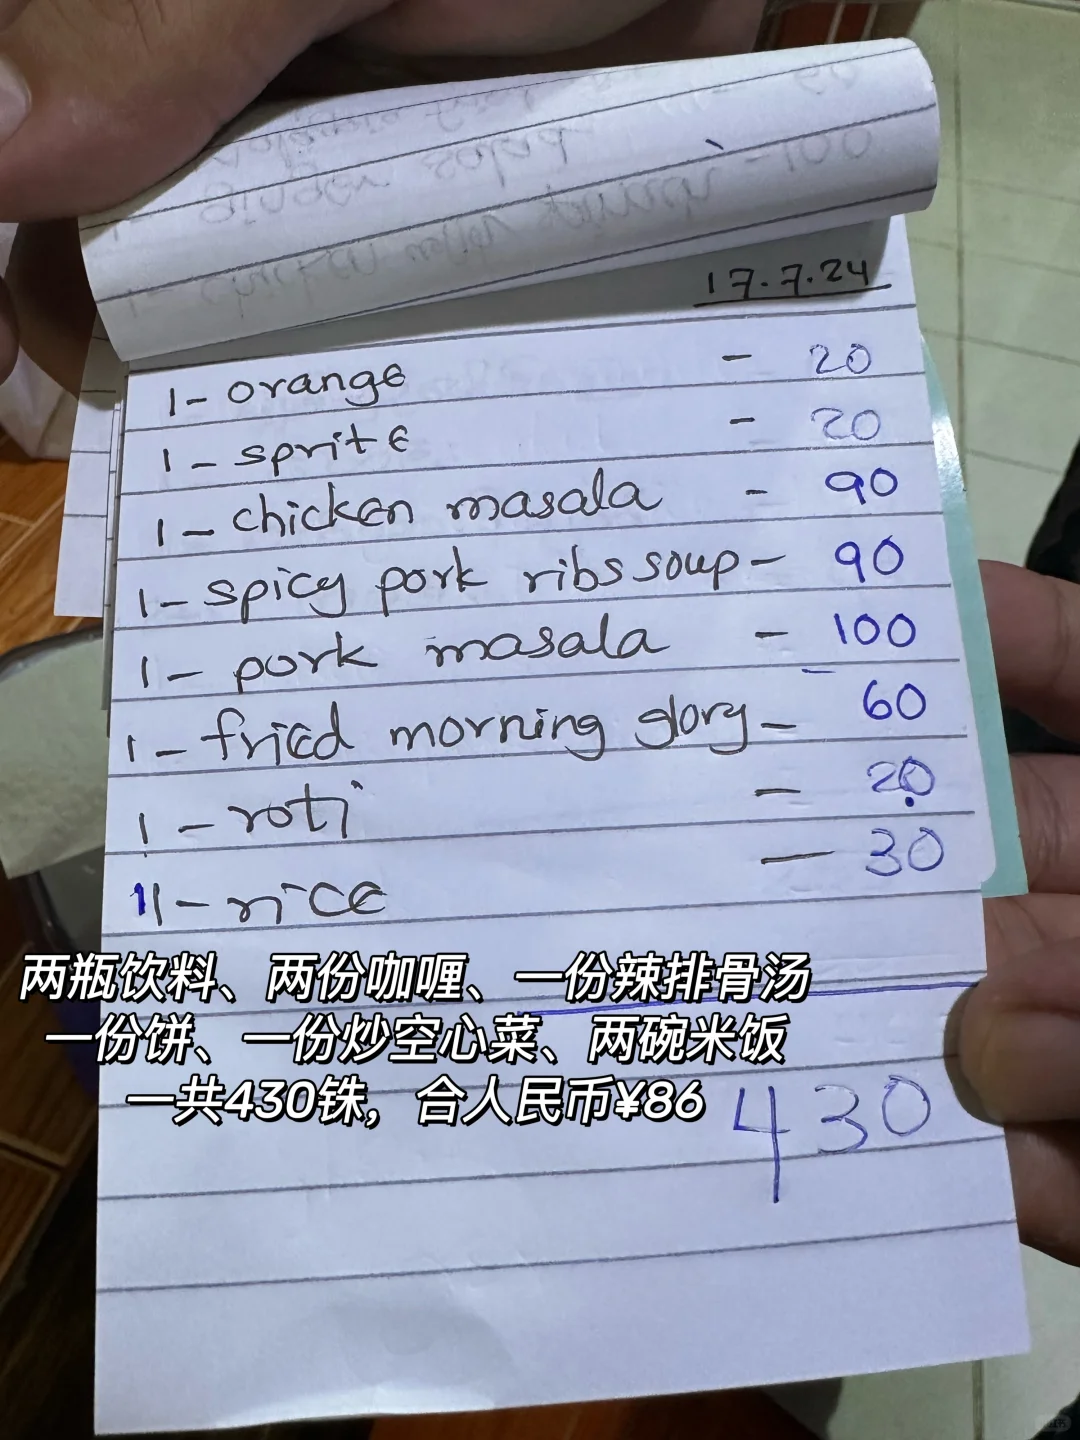 17.7.24
1- orange - 20
1 - sprite - 20
1 - chicken masala - 90
1 - spicy pork ribs soup - 90
1 - pork masala - 100
1 - fried morning glory - 60
1 - roti - 20
11 - rice - 30
两瓶饮料、两份咖喱、一份辣排骨汤
一份饼、一份炒空心菜、两碗米饭
一共430铢，合人民币¥86
430